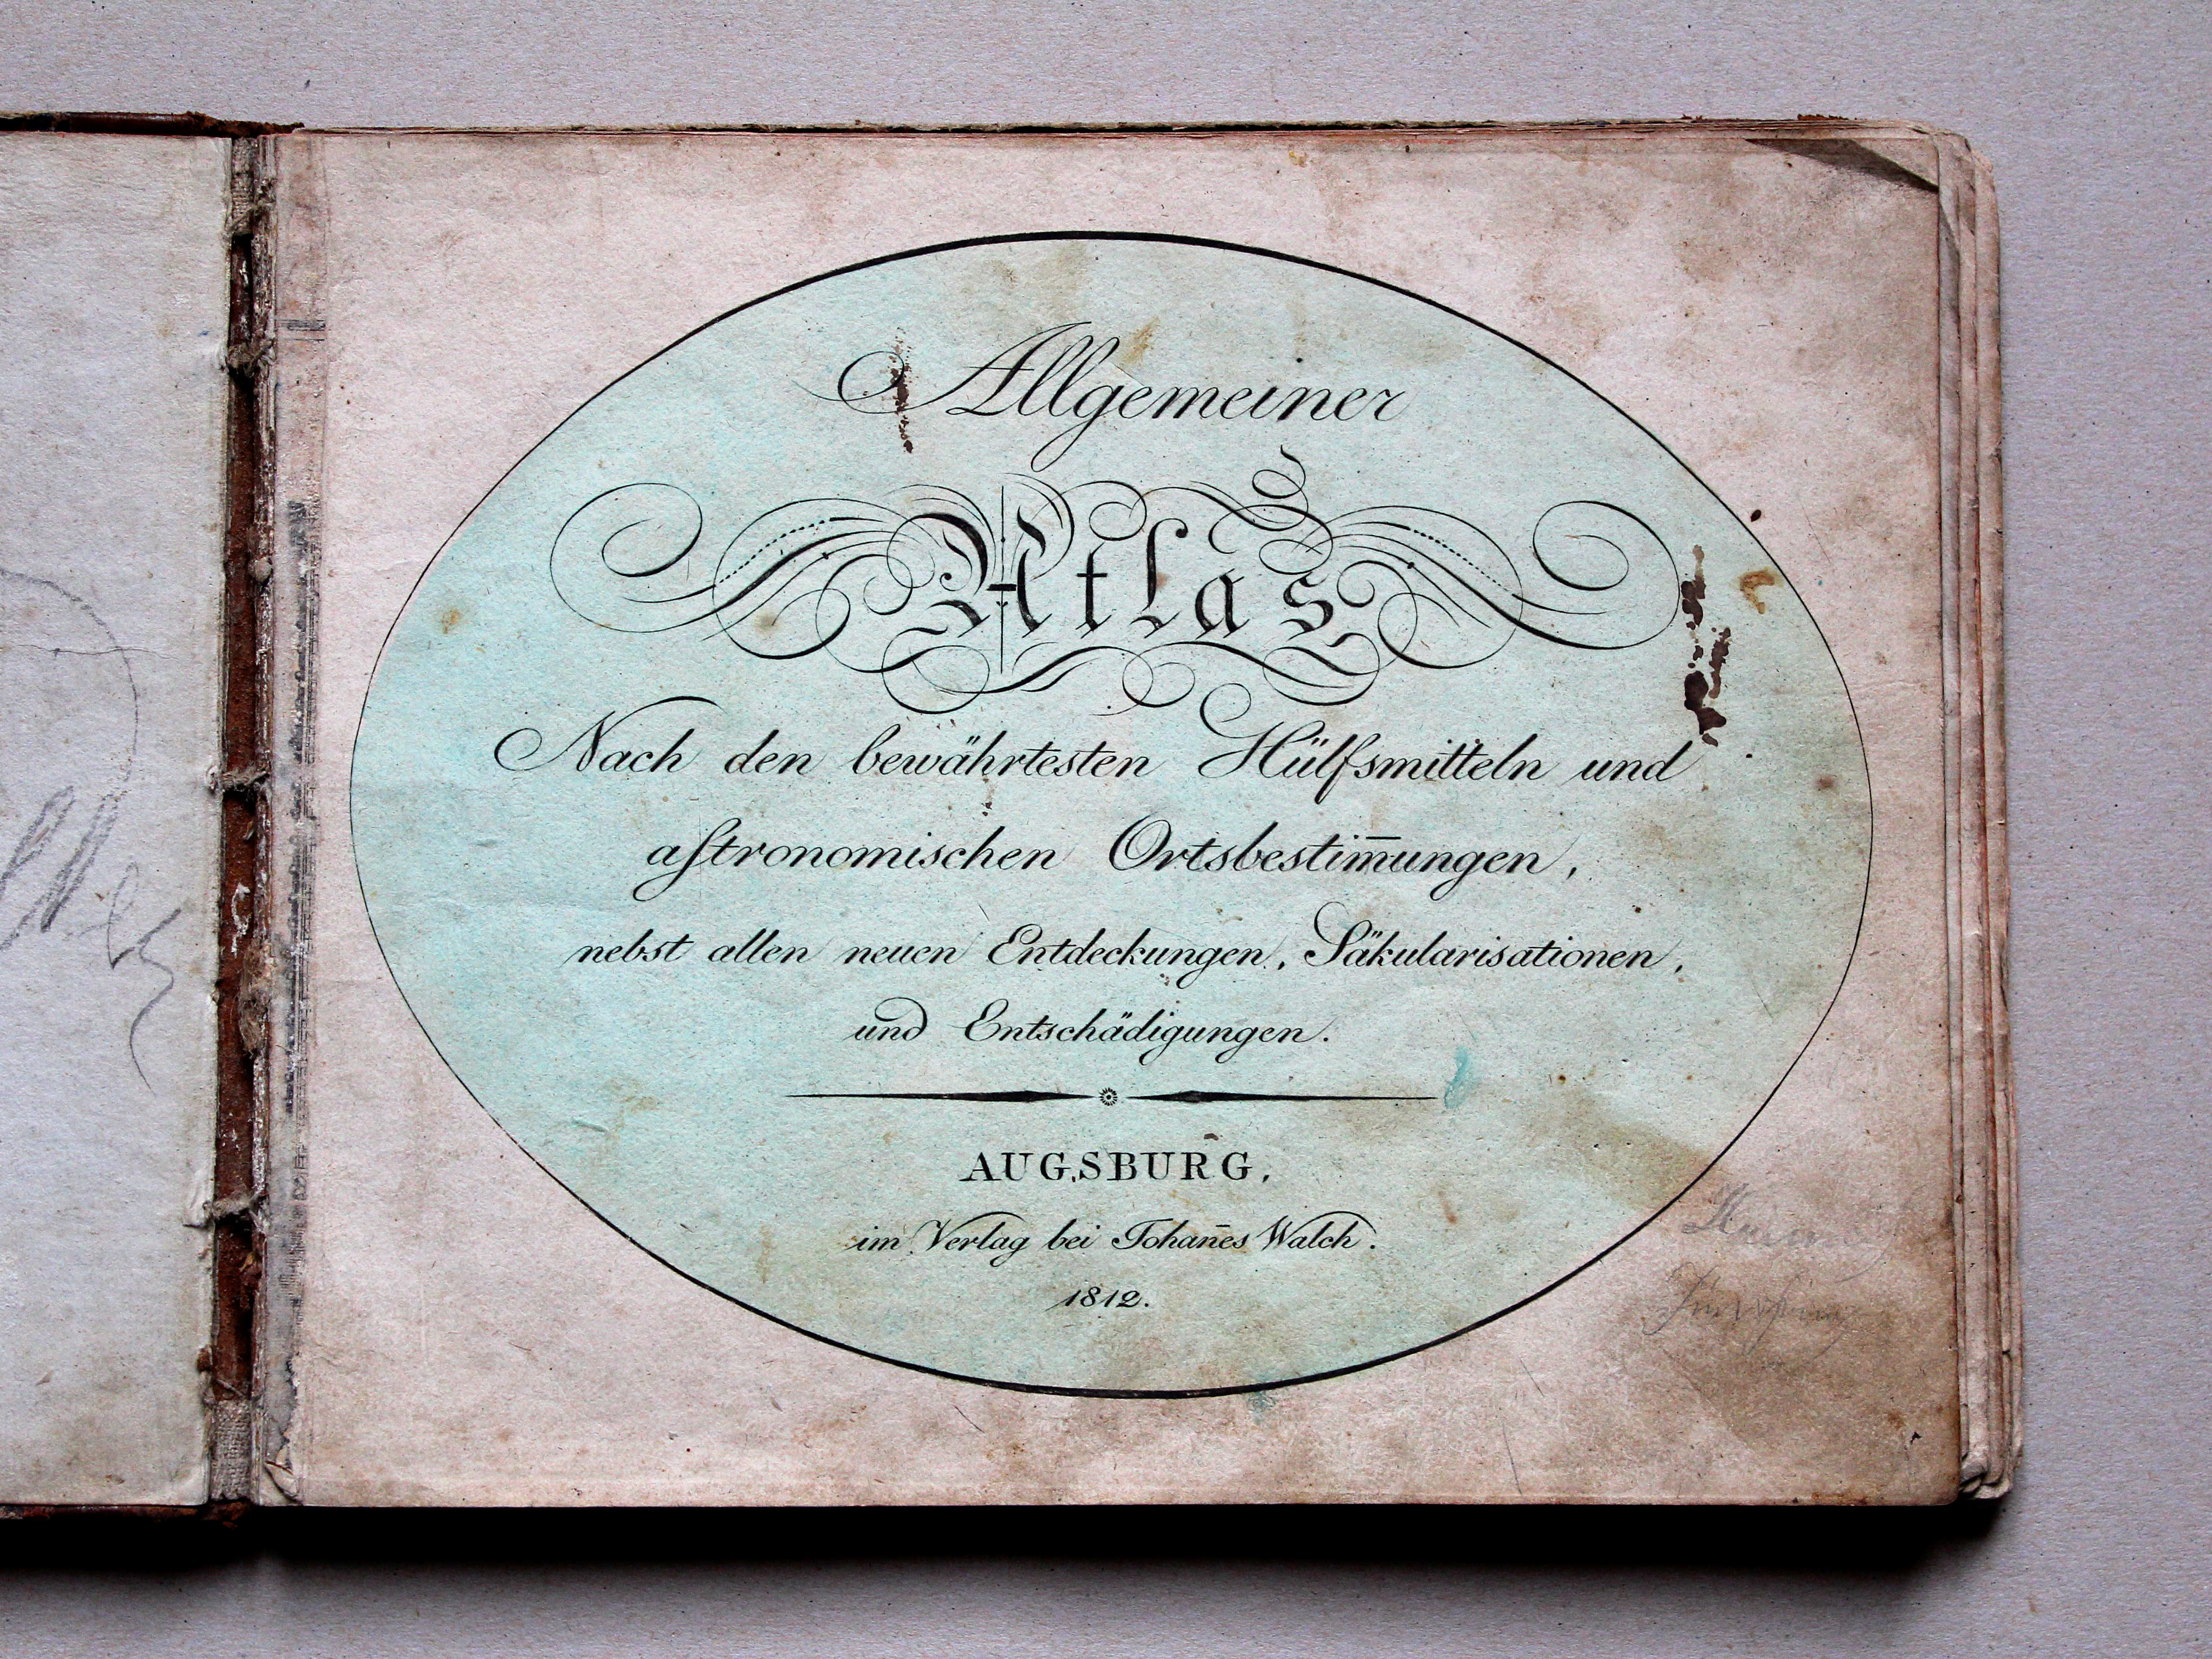 Allgemeiner
Atlas
Nach den bewährtesten Hülfsmitteln und
aſtronomischen Ortsbestim̅ungen,
nebst allen neuen Entdeckungen, Säkularisationen,
und Entschädigungen.
AUGSBURG,
im Verlag bei Johan̄es Walch.
1812.